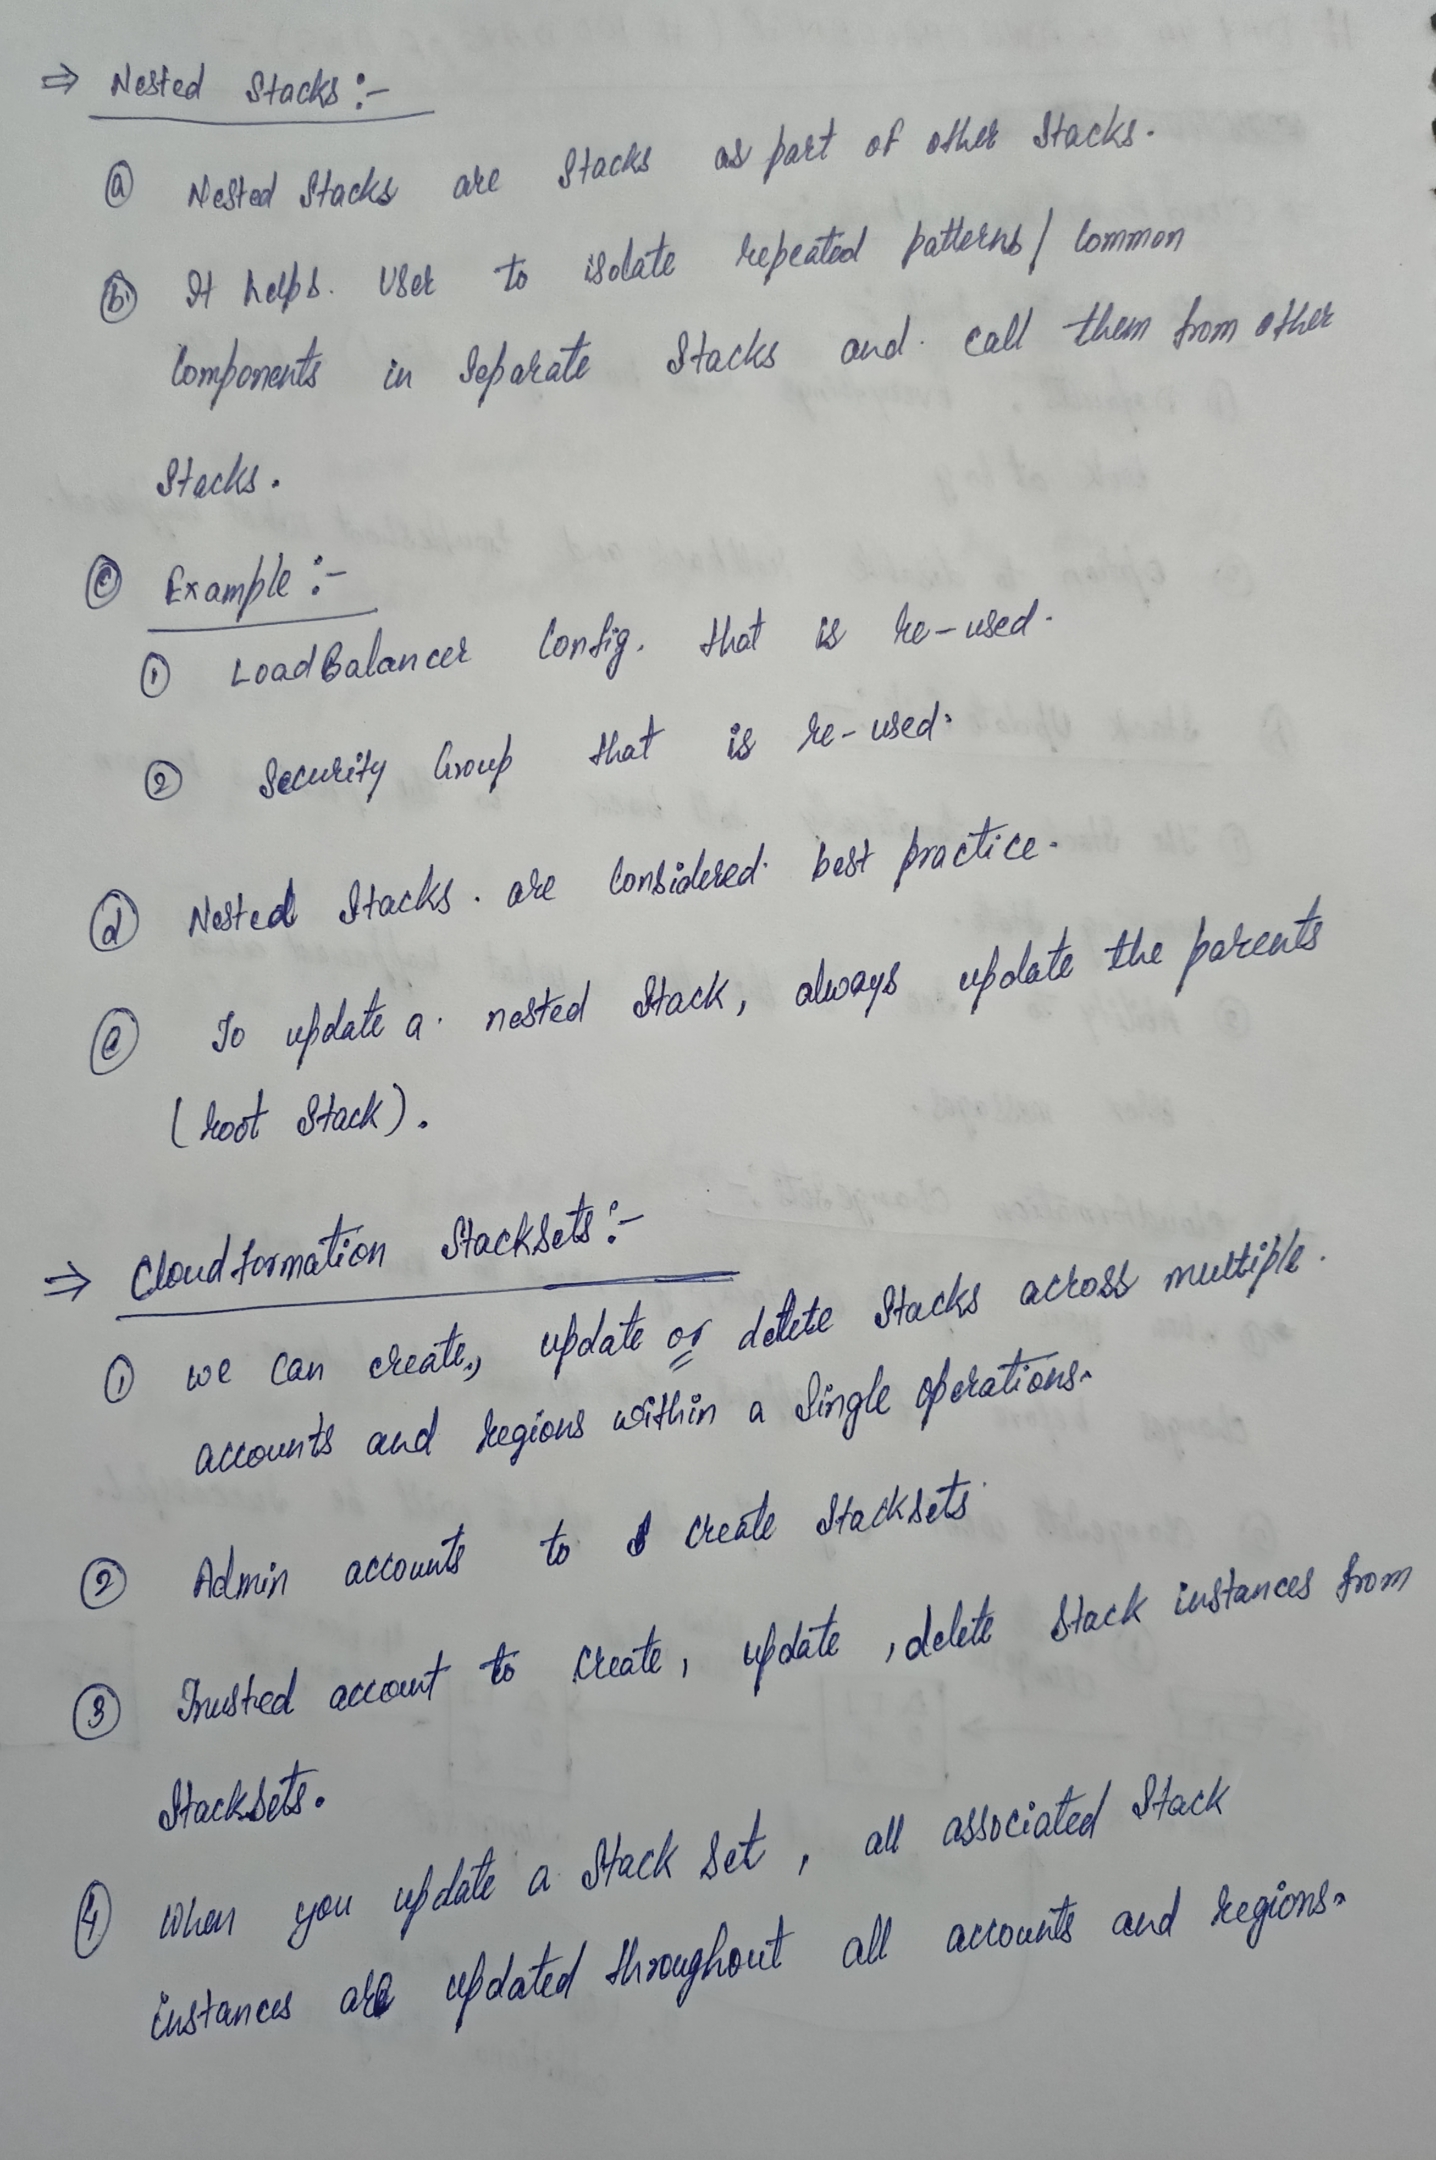 ⇒ Nested Stacks :-
ⓐ Nested Stacks are Stacks as part of other Stacks.
ⓑ It helps. User to isolate repeated patterns / Common
Components in Separate Stacks and. Call them from other
Stacks.
ⓒ Example :-
① LoadBalancer Config. that is re-used.
② Security Group that is re-used.
ⓓ Nested Stacks. are Considered. best practice.
ⓔ To update a. nested Stack, always update the parents
(root Stack).
⇒ Cloudformation StackSets :-
① we can create, update or delete Stacks across multiple.
accounts and regions within a Single operations.
② Admin accounts to create StackSets.
③ Trusted account to Create, update, delete Stack instances from
StackSets.
④ When you update a Stack Set, all associated Stack
instances are updated throughout all accounts and regions.